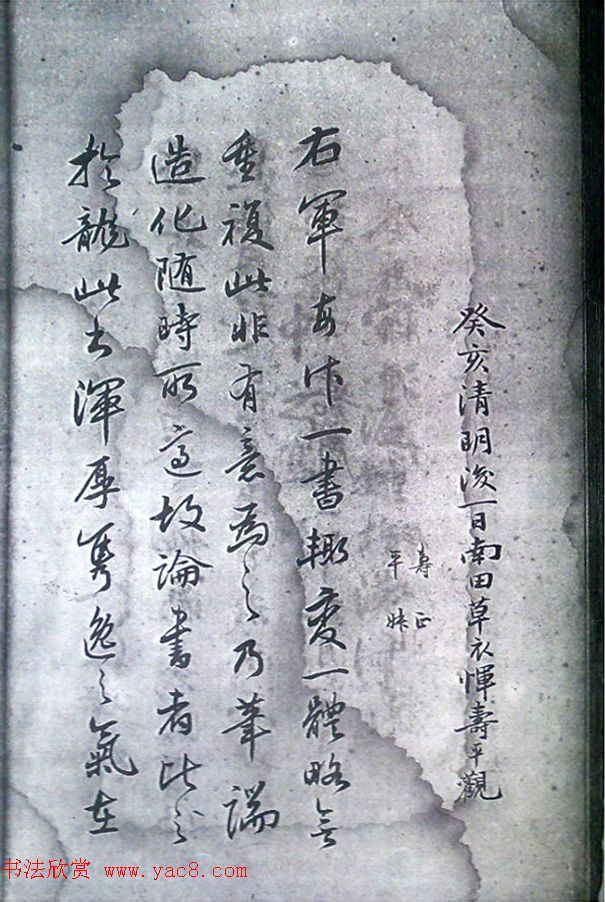 癸亥清明後一日南田草衣惲壽平觀
壽平
正妹
右軍每作一書輙變一體略無
重復此非有意為之乃筆端
造化随時所適故論書者比之
於龍此書渾厚雋逸之氣在
书法欣赏 www.yac8.com